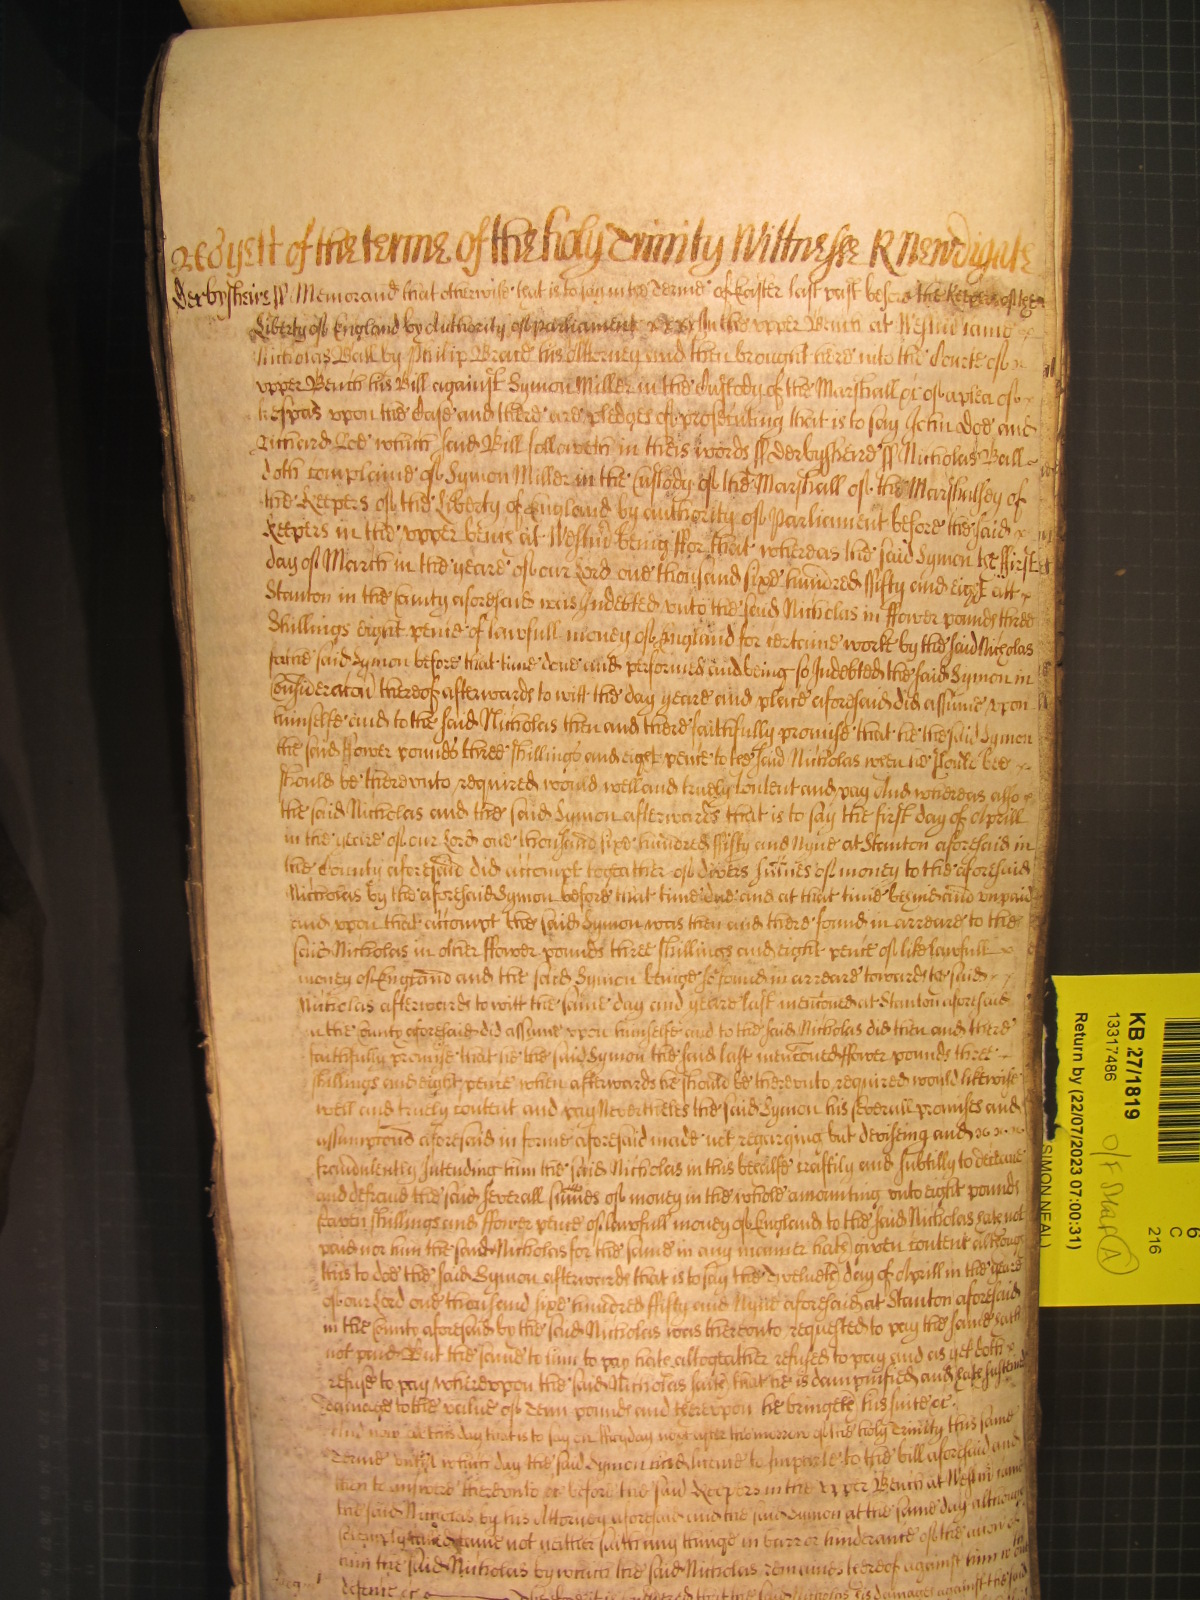 As yett of the terme of the holy Trinity Wittnesse R Newdigate
Derbysheire ss Memorand that otherwise that is to say in the Terme of Easter last past before the Keepers of the
Liberty of England by Authority of Parliament in the upper Bench at Westm came
Nicholas Ball by Philip his Attorney and then brought here into the Courte of
upper Bench his Bill against Symon Miller in the Custody of the Marshall &c of a plea of
trespas upon the Case and there are pledges of prosecuting that is to say John Doe and
Richard Roe which said Bill followeth in theis words ss Derbysheire ss Nicholas Ball
doth complaine of Symon Miller in the Custody of the Marshall of the Marshalsey of
the Keepers of the Liberty of England by authority of Parliament before the said
Keepers in the upper bench at Westm being ffor that whereas the said Symon the ffirst
day of March in the yeare of our Lord one thousand sixe hundred ffifty and eight att
Stanton in the County aforesaid was Indebted unto the said Nicholas in ffower pounds three
Shillings eight pence of lawfull money of England for certaine worke by the said Nicholas
for the said Symon before that time done and performed and being so Indebted the said Symon in
Consideracon thereof afterwards to witt the day yeare and place aforesaid did assume upon
himselfe and to the said Nicholas then and there faithfully promise that he the said Symon
the said ffower pounds three shillings and eight pence to the said Nicholas when he should bee
should be thereunto required would well and truely Content and pay And whereas also
the said Nicholas and the said Symon afterwards that is to say the first day of Aprill
in the yeare of our Lord one thousand sixe hundred ffifty and Nyne at Stanton aforesaid in
the County aforesaid did accompt togeather of divers summes of money to the aforesaid
Nicholas by the aforesaid Symon before that time due and at that time behind and unpaid
and upon that accompt the said Symon was then and there found in arreare to the
said Nicholas in other ffower pounds three shillings and eight pence of like lawfull
money of England and the said Symon being so found in arreare towards the said
Nicholas afterwards to witt the same day and yeare last menconed at Stanton aforesaid
in the County aforesaid did assume upon himselfe and to the said Nicholas did then and there
faithfully promise that he the said Symon the said last menconed ffower pounds three
shillings and eight pence when afterwards he should be thereunto required would likewise
well and truely content and pay Nevertheles the said Symon his severall promises and
assumpcons aforesaid in forme aforesaid made not regarding but deviseing and
fraudulently Intending him the said Nicholas in this behalfe craftily and subtilly to deceave
and defraud the said severall summes of money in the whole amounting unto eight pounds
seaven shillings and ffower pence of lawfull money of England to the said Nicholas hath not
paid nor him the said Nicholas for the same in any manner hath given content although
this to doe the said Symon afterwards that is to say the twelveth day of Aprill in the yeare
of our Lord one thousand sixe hundred ffifty and Nyne aforesaid at Stanton aforesaid
in the County aforesaid by the said Nicholas was thereunto requested to pay the same hath
not paid But the same to him to pay hath altogeather refused to pay and as yet doth
refuse to pay whereupon the said Nicholas saith that he is dampnified and hath susteined
Damage to the value of Tenn pounds and thereupon he bringeth his suite &c
And now at this day that is to say on ffryday next after the morrow of the holy Trinity this same
Terme untill which day the said Symon had licence to Imparle to the bill aforesaid and
then to answere thereunto &c before the said Keepers in the upper Bench at Westm came
the said Nicholas by his Attorney aforesaid and the said Symon at the same day although
solemply came not neither saith any thinge in barr or hinderance of the accon of
him the said Nicholas by which the said Nicholas remaines thereof against him
defence &c the said Nicholas his damages against the said
KB 27/1819
13317486
Return by (22/07/2023 07:00:31)
SIMON NEAL)
6
C
216
O/F Staff A